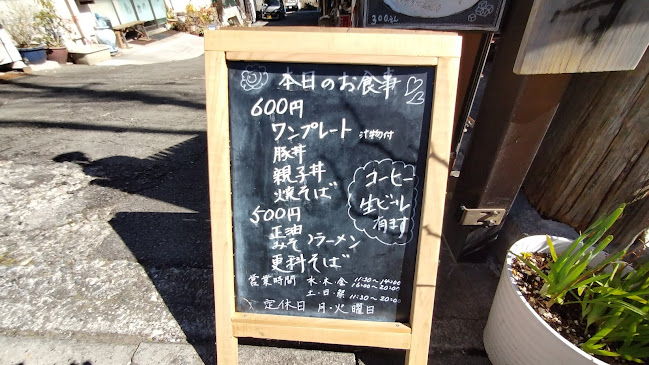 300円
本日のお食事
600円
ワンプレート 汁物付
豚丼
親子丼
焼そば
500円
正油
みそ〉ラーメン
更科そば
コーヒー
生ビール
有ます
営業時間 水・木・金 11:30〜14:00
16:00〜20:00
土・日・祭 11:30〜20:00
定休日 月・火曜日